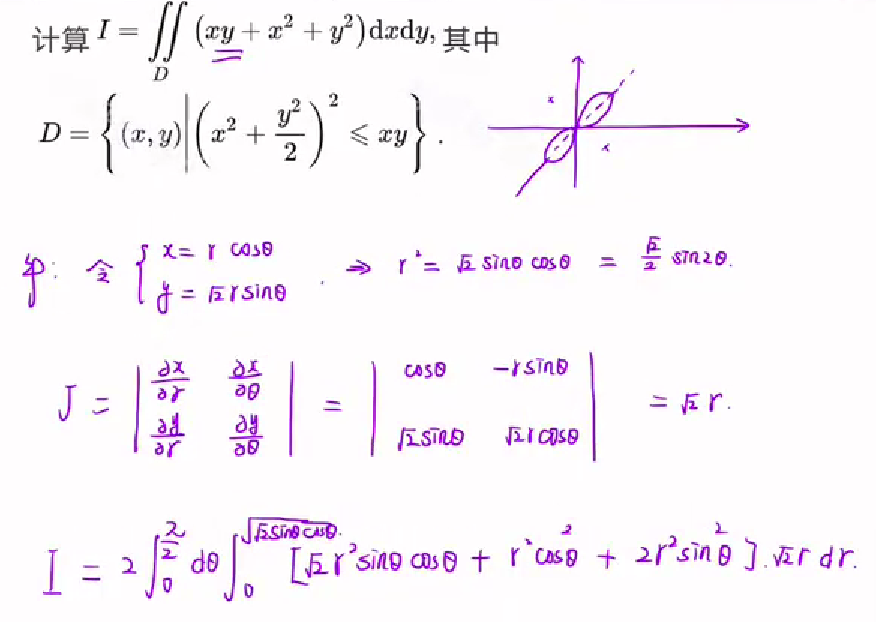 计算 I = ∬_D (xy + x² + y²)dxdy, 其中
D = {(x, y) | (x² + y²/2)² ⩽ xy} .
令 { x = r cosθ
y = √2 r sinθ . ⇒ r² = √2 sinθ cosθ = √2/2 sin2θ.
J = | ∂x/∂r ∂x/∂θ ; ∂y/∂r ∂y/∂θ | = | cosθ -r sinθ ; √2 sinθ √2 r cosθ | = √2 r.
I = 2 ∫_0^{π/2} dθ ∫_0^{√(√2 sinθ cosθ)} [√2 r² sinθ cosθ + r² cos²θ + 2r² sin²θ ] . √2 r dr.